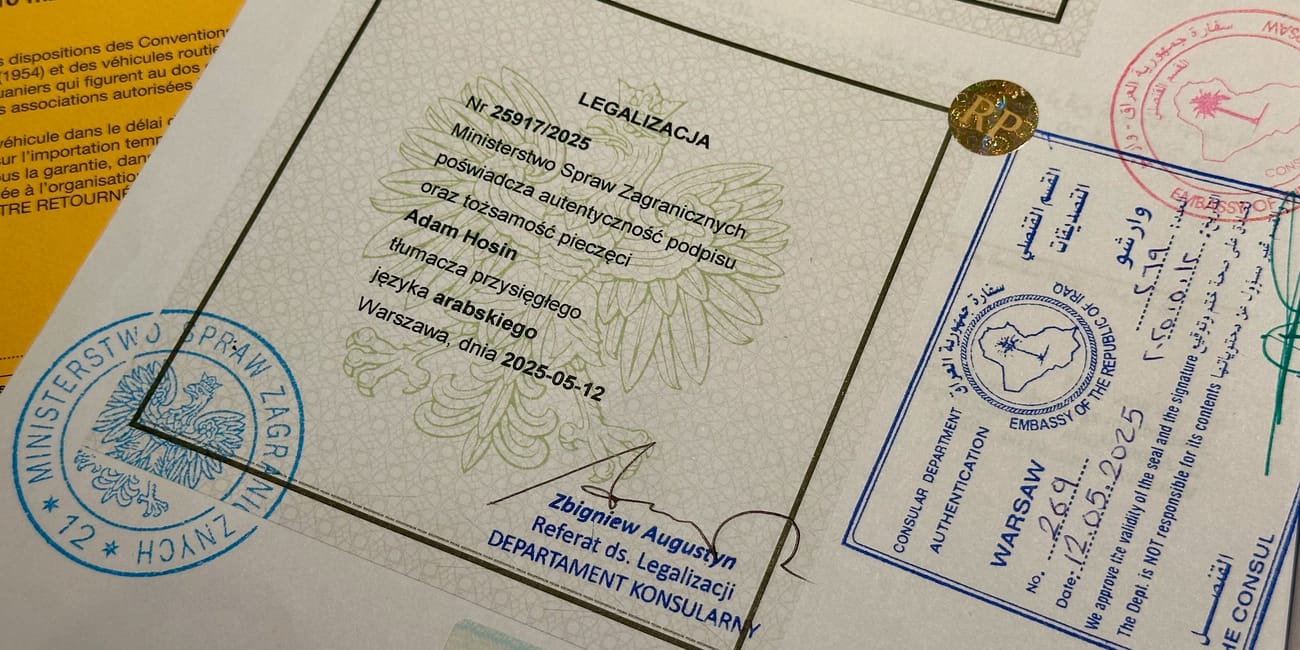 s dispositions des Convention
(1954) et des véhicules routie
uaniers qui figurent au dos
s associations autorisées
véhicule dans le délai
ur l'importation temp
ous la garantie, dan
ée à l'organisatio
TRE RETOURNÉ
LEGALIZACJA
Nr 25917/2025
Ministerstwo Spraw Zagranicznych
poświadcza autentyczność podpisu
oraz tożsamość pieczęci
Adam Hosin
tłumacza przysięgłego
języka arabskiego
Warszawa, dnia 2025-05-12
Zbigniew Augustyn
Referat ds. Legalizacji
DEPARTAMENT KONSULARNY
MINISTERSTWO SPRAW ZAGRANICZNYCH
* 12 *
RP
سفارة جمهورية العراق - وار
القسم القنصلي
EMBASSY OF
CONS
القسم القنصلي
التصديقات
وارشو
سفارة جمهورية العراق
EMBASSY OF THE REPUBLIC OF IRAQ
CONSULAR DEPARTMENT
AUTHENTICATION
WARSAW
No. 269
Date: 12.05.2025
We approve the validity of the seal and the signature
The Dept. is NOT responsible for its contents
القنصل
HE CONSUL